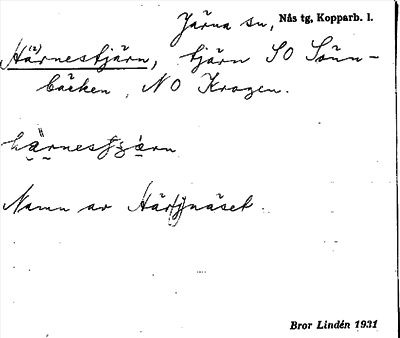 Järna sn, Nås tg, Kopparb. l.
Härnestjärn, tjärn SO Sönn-
bäcken, NO Kragen.
Namn av Här(j)näset.
Bror Lindén 1931